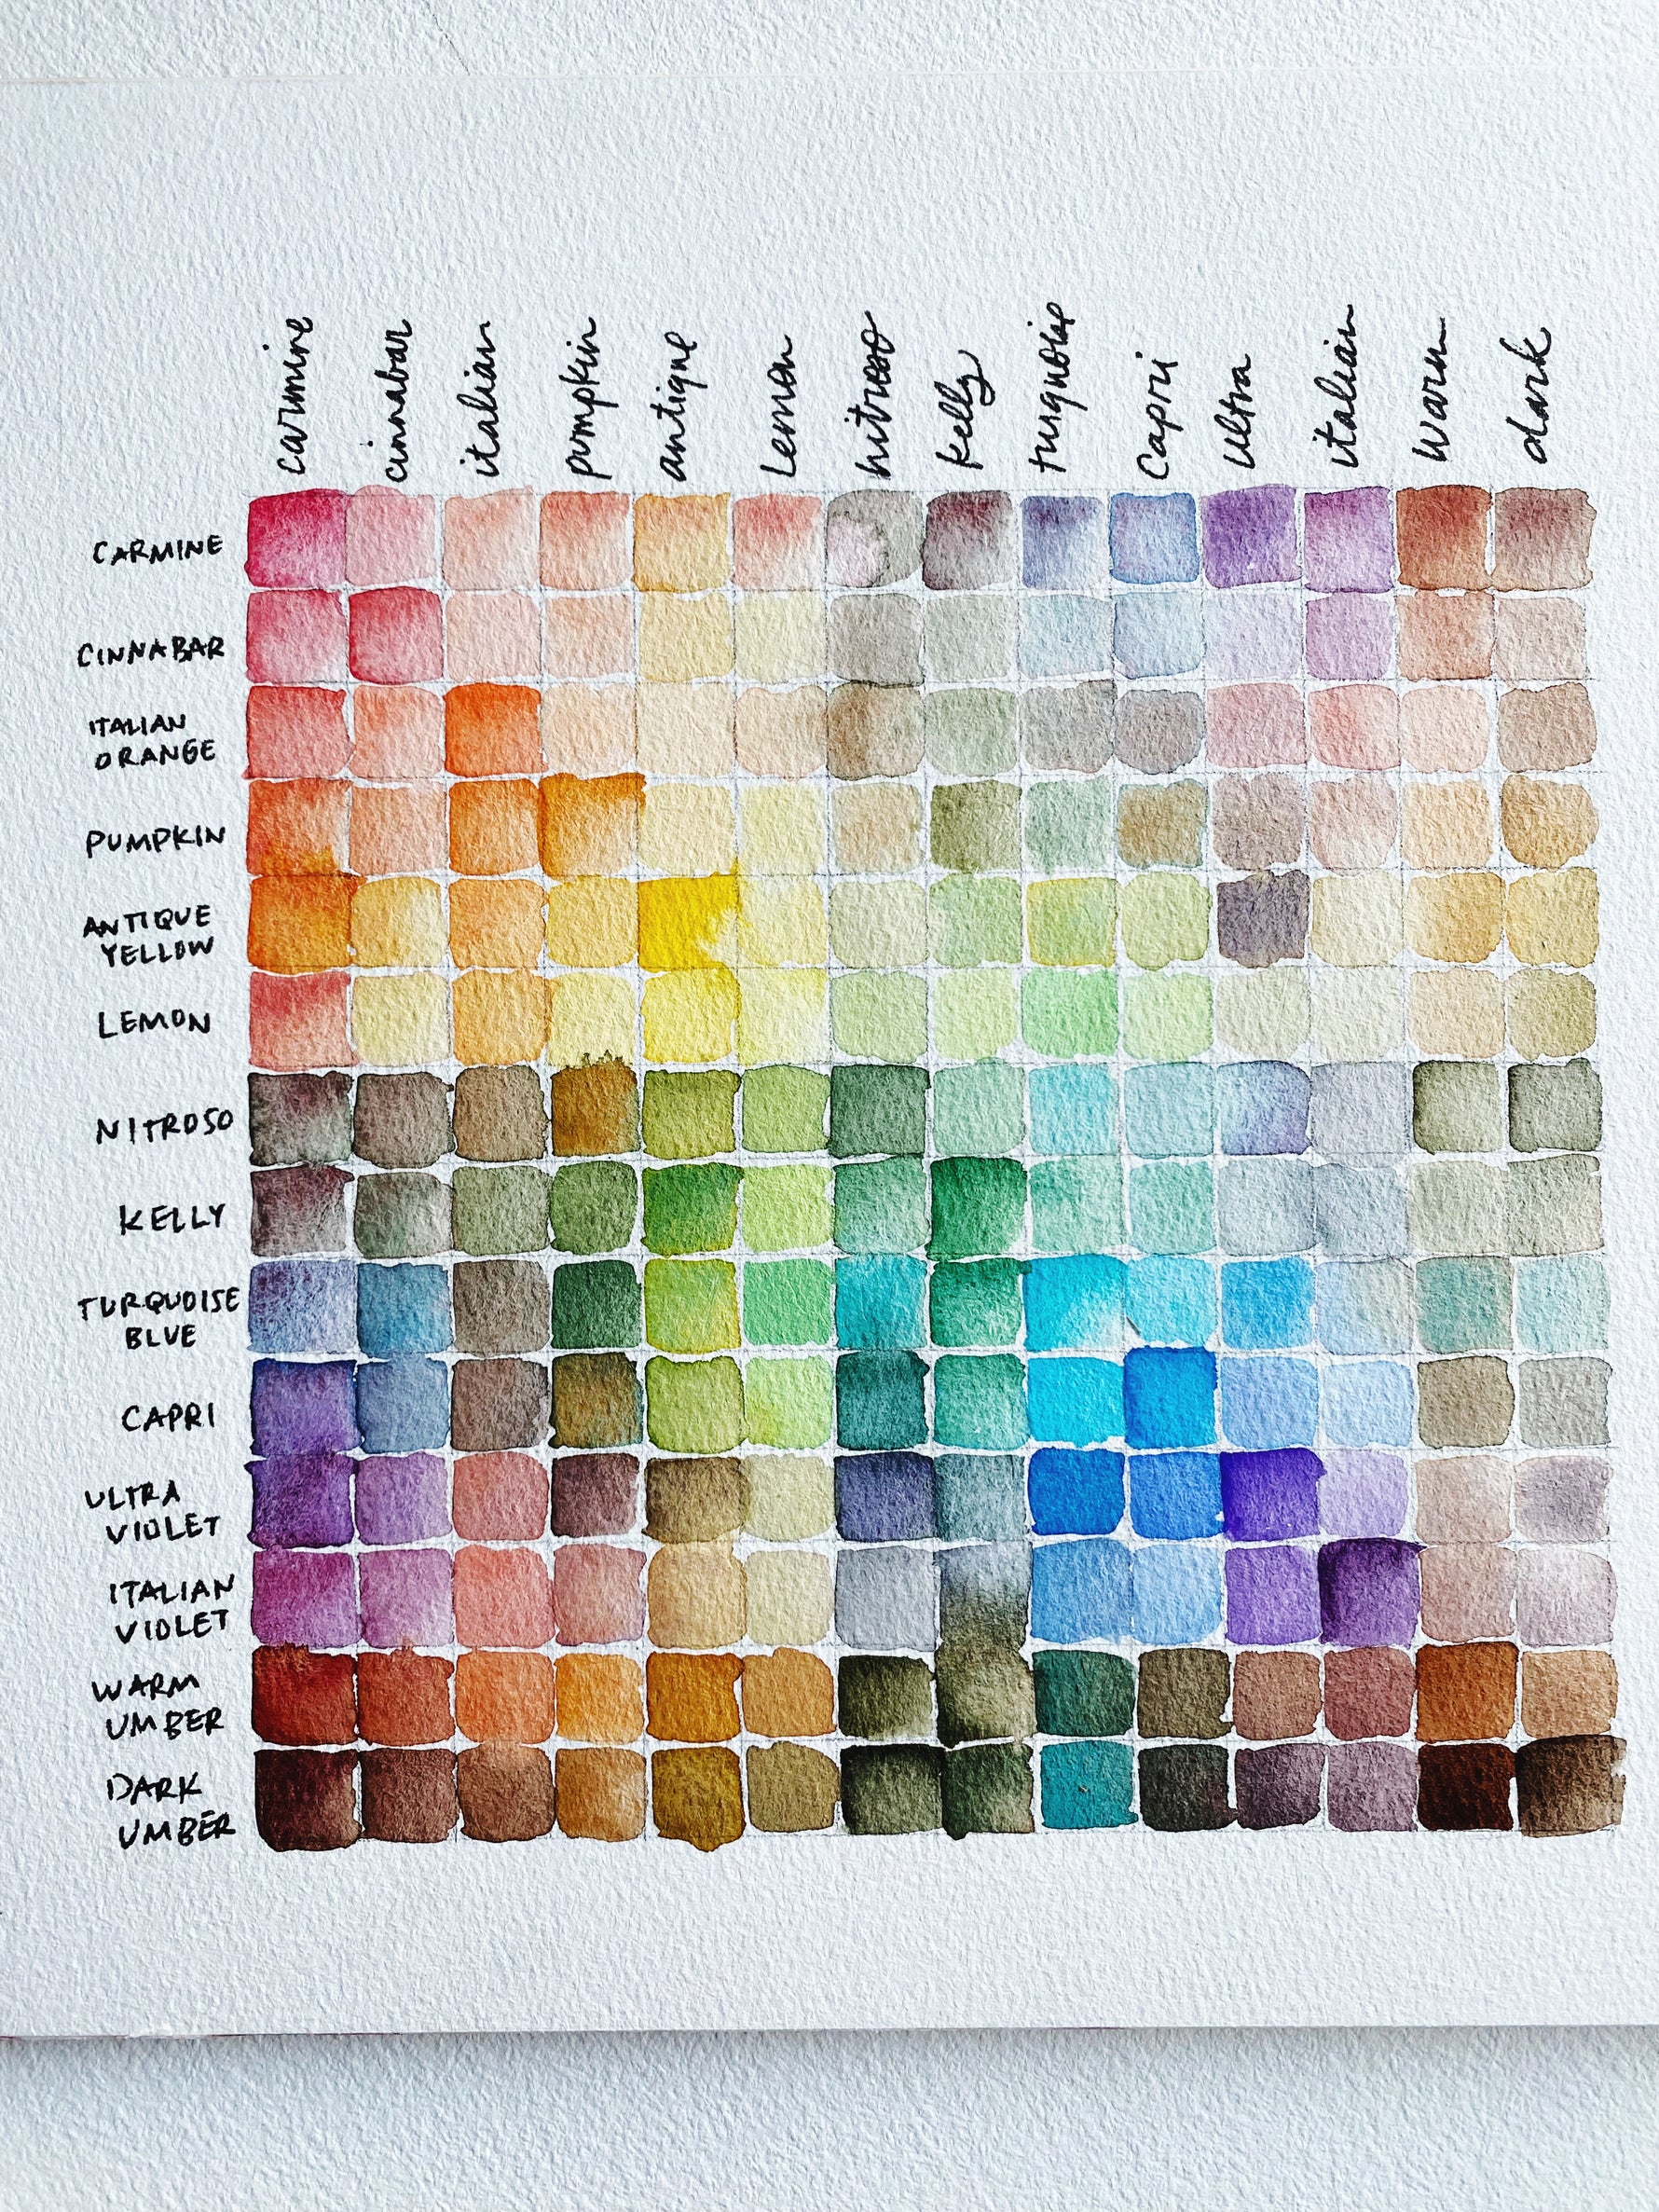 carmine
cinnabar
italian
pumpkin
antique
lemon
nitroso
kelly
turquoise
capri
ultra
italian
warm
dark
CARMINE
CINNABAR
ITALIAN
ORANGE
PUMPKIN
ANTIQUE
YELLOW
LEMON
NITROSO
KELLY
TURQUOISE
BLUE
CAPRI
ULTRA
VIOLET
ITALIAN
VIOLET
WARM
UMBER
DARK
UMBER